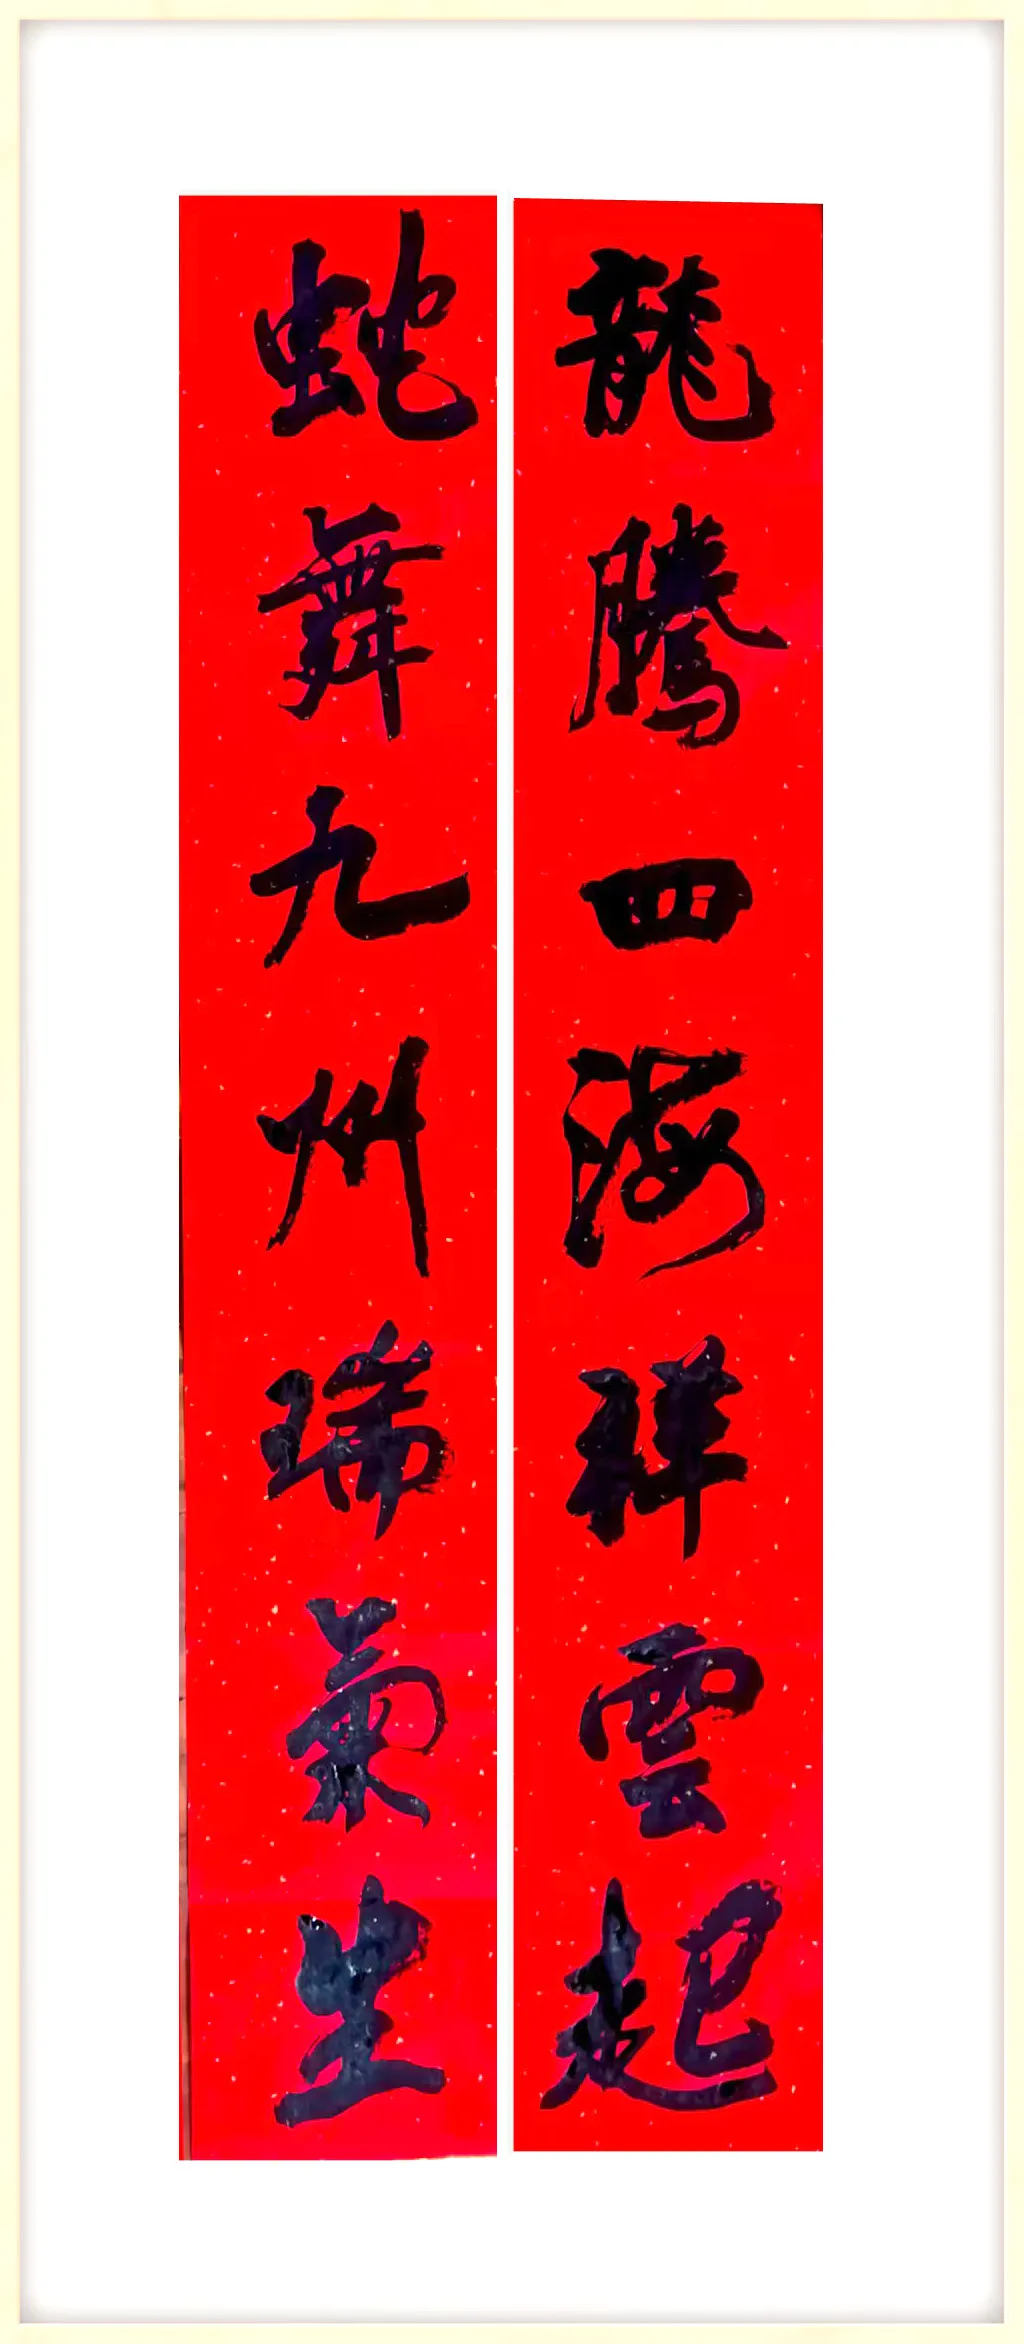 龍騰四海祥雲起
蛇舞九州瑞氣生